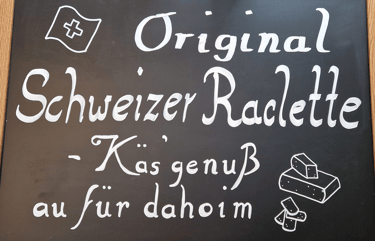 Original
Schweizer Raclette
- Käs'genuß
au für dahoim